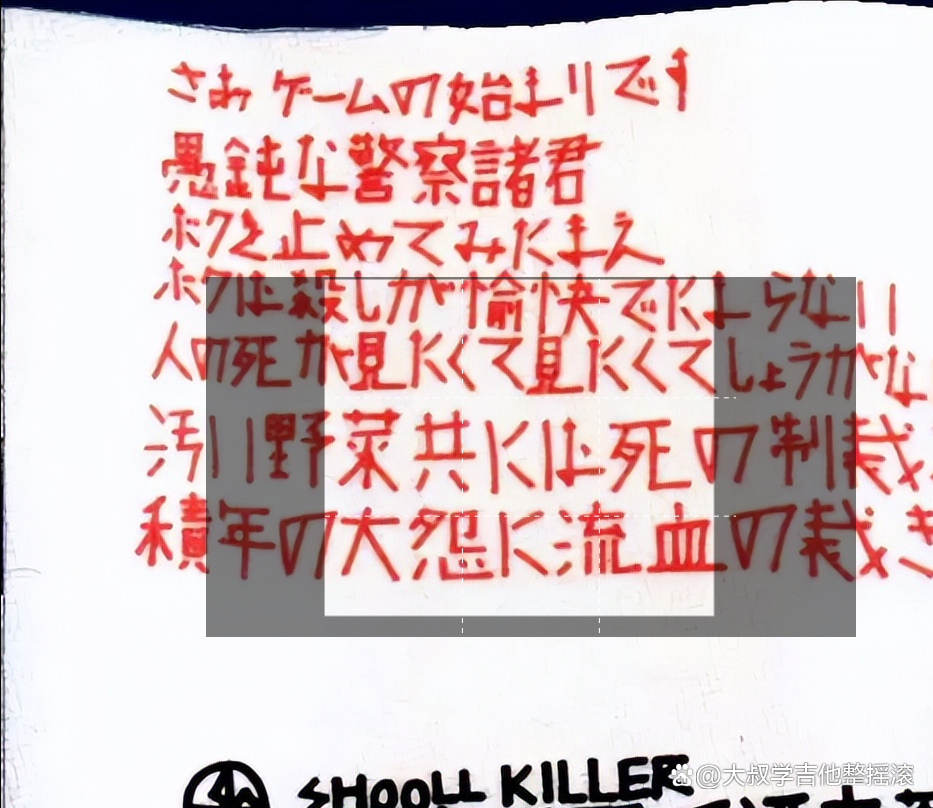 さあゲームの始まりです
愚鈍な警察諸君
ボクを止めてみたまえ
ボクは殺しが愉快でたまらない
人の死が見たくて見たくてしょうがな
汚い野菜共には死の制裁
積年の大怨に流血の裁き
SHOOLL KILLER
@大叔学吉他整摇滚